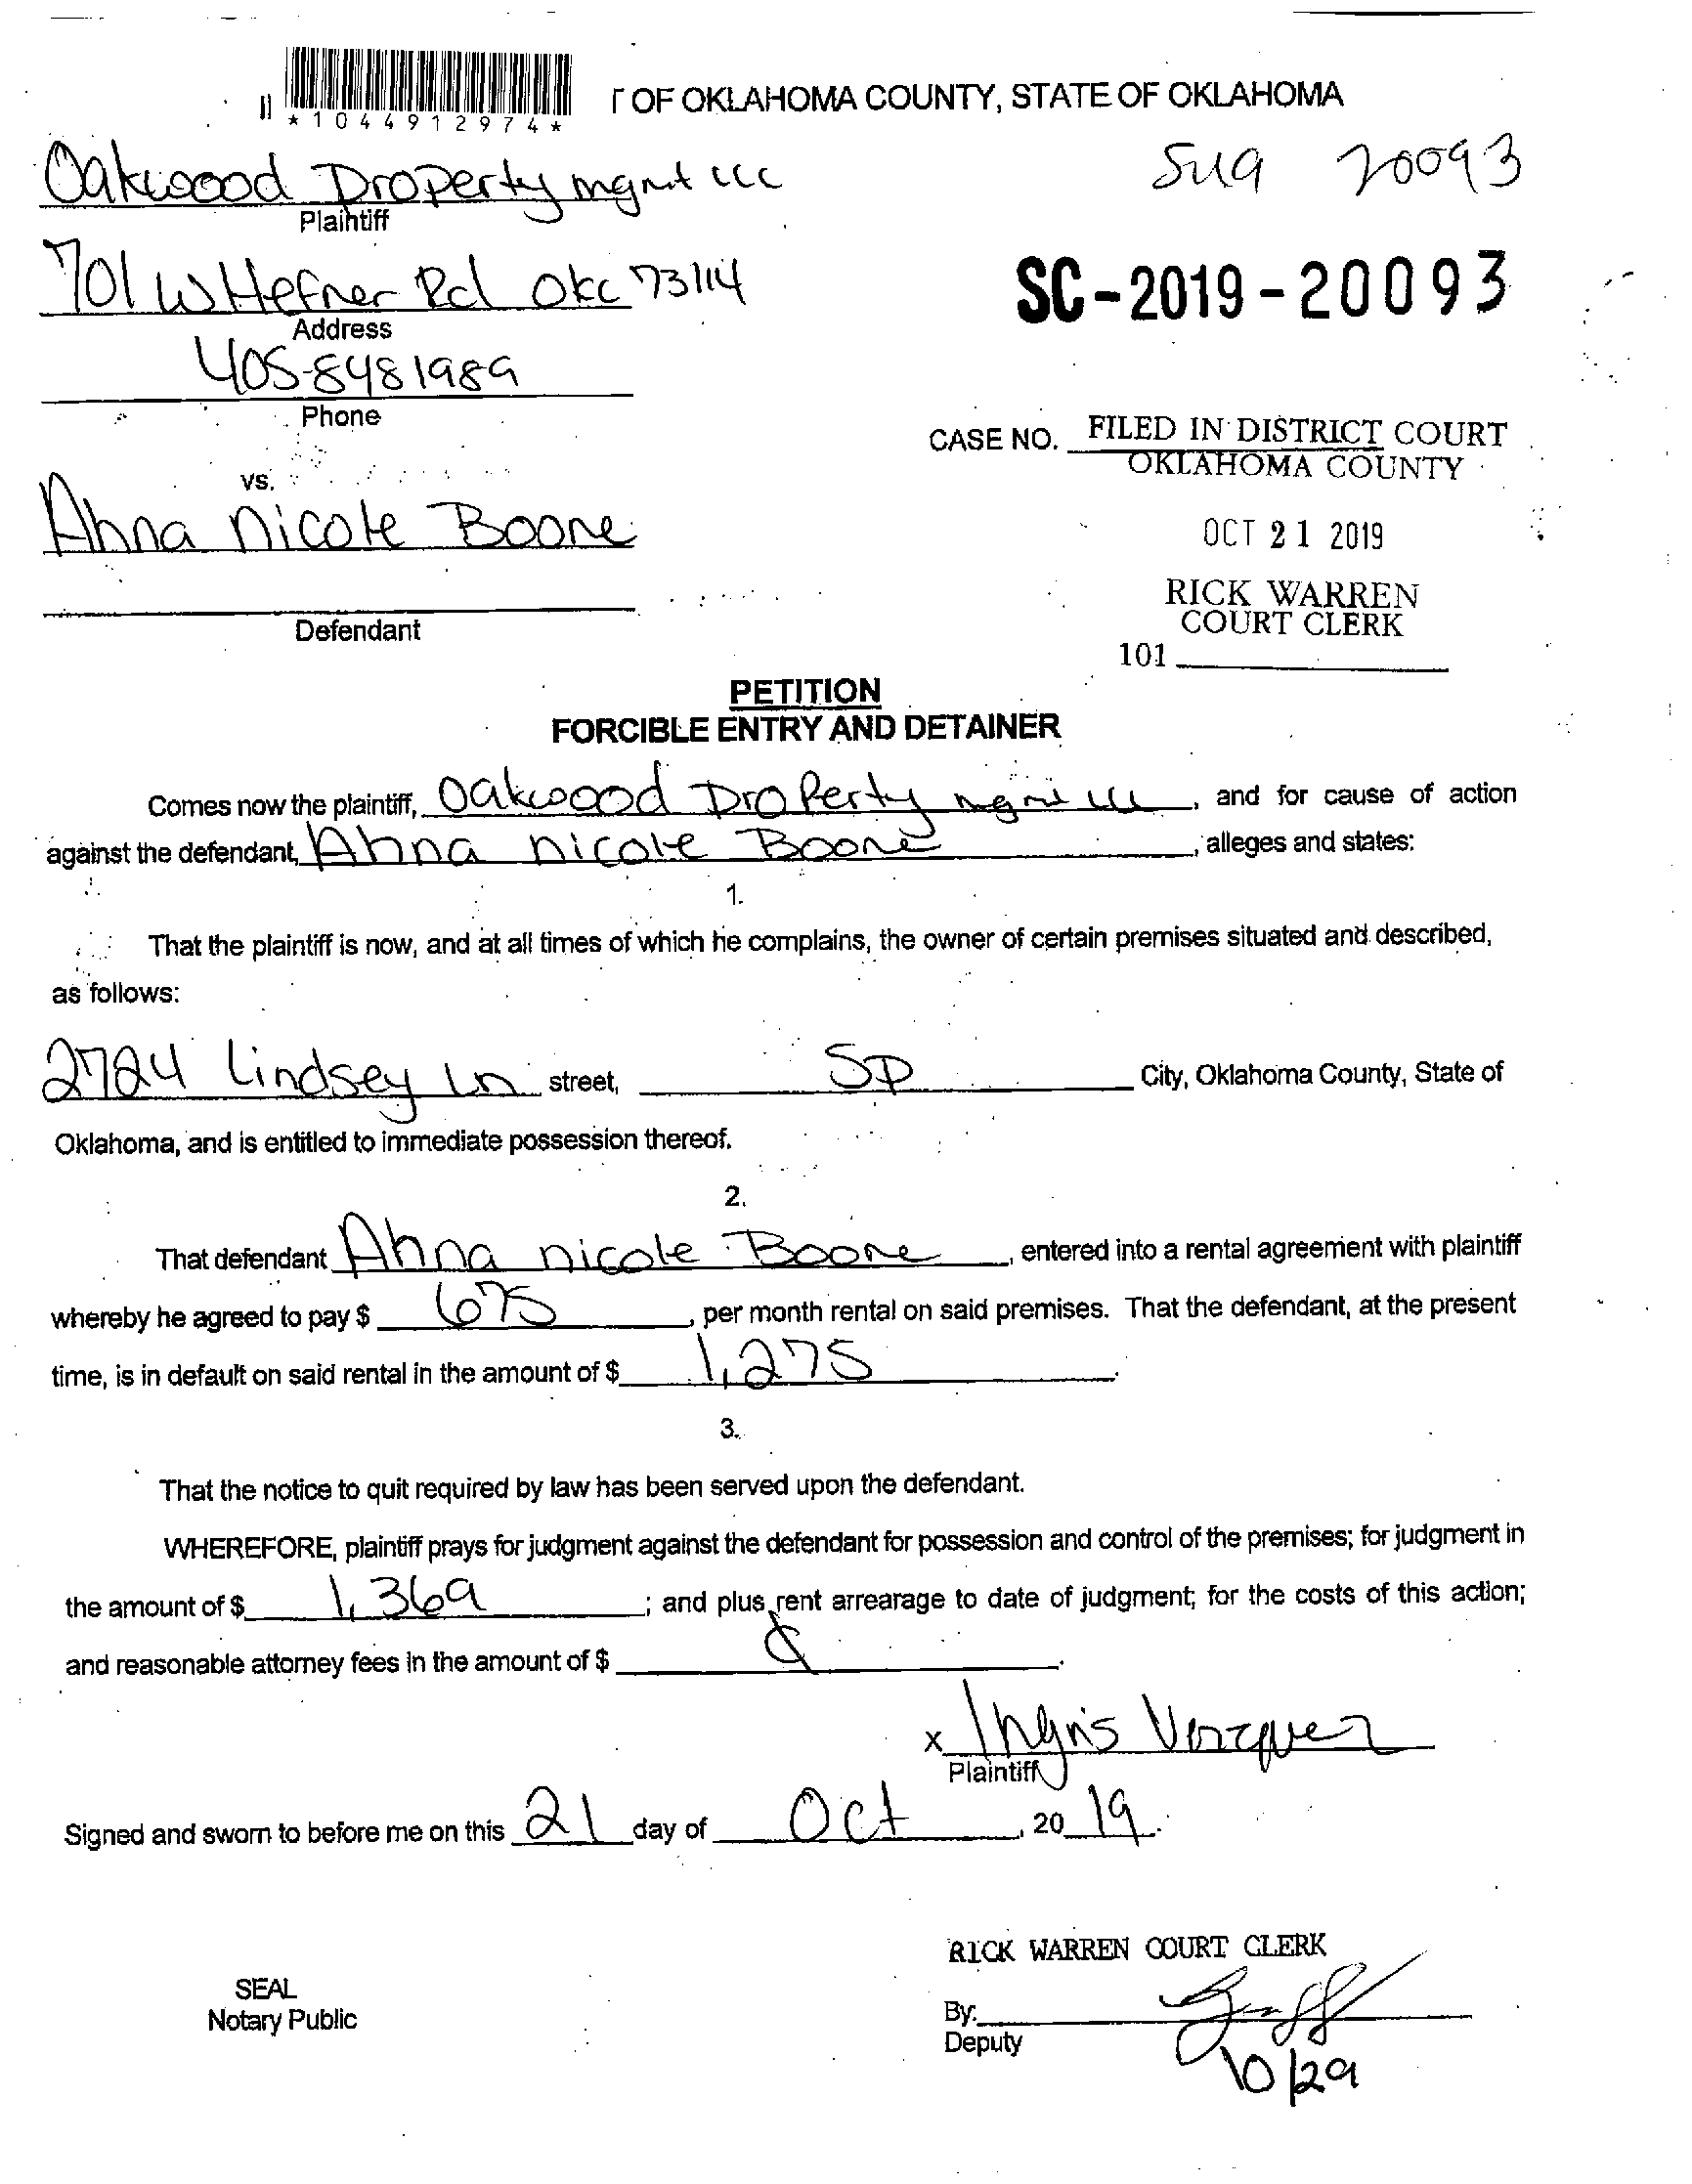 T OF OKLAHOMA COUNTY, STATE OF OKLAHOMA
*1044912974*
Oakwood Property mgmt llc
Plaintiff
20093
701 W Hefner Rd Okc 73114
Address
SC-2019-20093
405-8481989
Phone
CASE NO. FILED IN DISTRICT COURT
OKLAHOMA COUNTY
vs.
Ahna Nicole Boone
OCT 21 2019
RICK WARREN
COURT CLERK
Defendant
101
PETITION
FORCIBLE ENTRY AND DETAINER
Comes now the plaintiff, Oakwood Property mgmt llc, and for cause of action
against the defendant, Ahna nicole Boone, alleges and states:
1.
That the plaintiff is now, and at all times of which he complains, the owner of certain premises situated and described,
as follows:
2724 Lindsey Ln street, SP City, Oklahoma County, State of
Oklahoma, and is entitled to immediate possession thereof.
2.
That defendant Ahna nicole Boone, entered into a rental agreement with plaintiff
whereby he agreed to pay $ 675, per month rental on said premises. That the defendant, at the present
time, is in default on said rental in the amount of $ 1,275.
3.
That the notice to quit required by law has been served upon the defendant.
WHEREFORE, plaintiff prays for judgment against the defendant for possession and control of the premises; for judgment in
the amount of $ 1,369; and plus rent arrearage to date of judgment; for the costs of this action;
and reasonable attorney fees in the amount of $
x
Plaintiff
Signed and sworn to before me on this 21 day of Oct, 20 19.
RICK WARREN COURT CLERK
SEAL
Notary Public
By:
Deputy
10/29